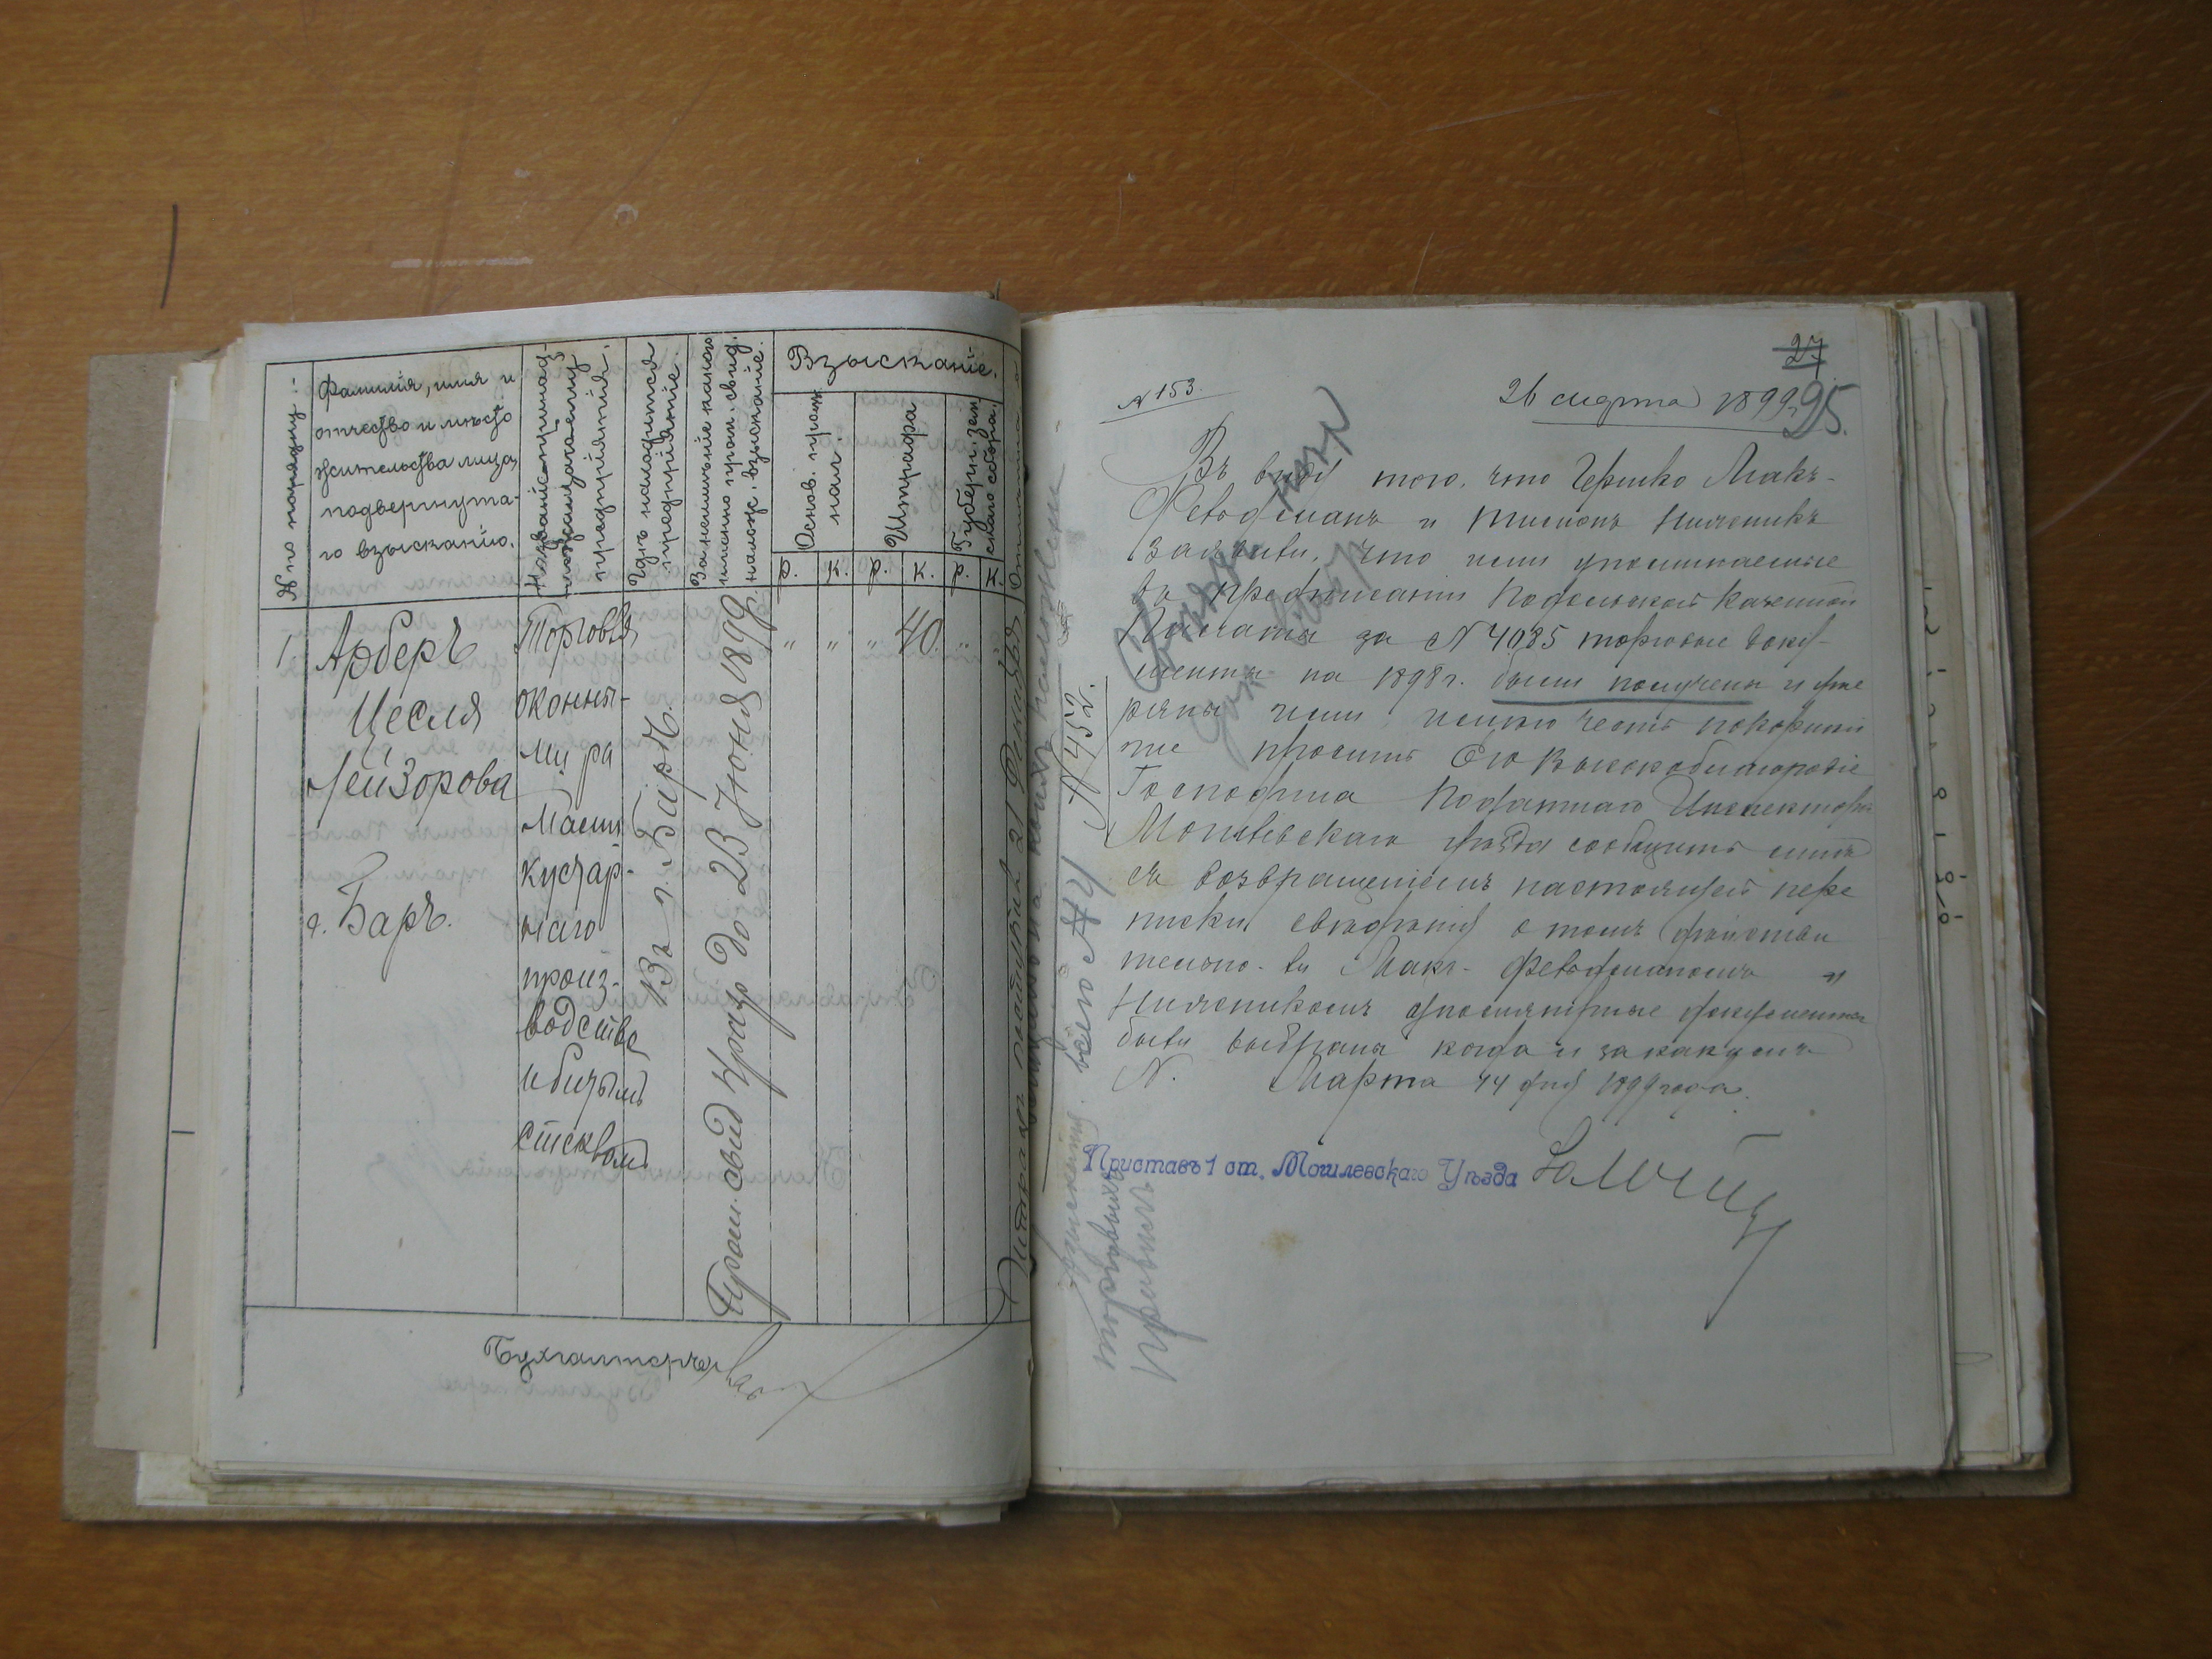 № по порядку:
Фамилія, имя и
отчество и мѣсто
жительства лица,
подвергнута-
го взысканію.
Названіе принад-
лежащаго ему
предпріятія.
Гдѣ находится
предпріятіе.
За неимѣніе какого
именно пром. свид.
налож. взысканіе.
Взысканіе.
Основ. пром.
нал.
Штрафа
Губерн. зем
скаго сбора.
р. к. р. к. р. к.
1
Арберъ
Цесля
Лейзорова
г. Баръ.
Торговля
оконны-
ми ра
мами
кустар-
наго
произ-
водства
и битымъ
стекломъ
Въ г. Барѣ.
Пром. свид IV разр до 23 Іюня 1899.
" " " 40. " "
Бухгалтеръ
27
95.
№ 153.
26 марта 1899 г.
Въ виду того, что Гершко Макъ-
Фельдманъ и
заявили, что ими упоминаемые
въ предписаніи Подольской Казенной
Палаты за № 4085 торговые доку-
менты на 1898 г. были получены и уте
ряны ими, имѣю честь покорнѣй
ше просить Его Высокоблагородіе
Господина Податного Инспектора
Могилевскаго уѣзда сообщить мнѣ
съ возвращеніемъ настоящей пере
писки свѣдѣнія о томъ дѣйстви
тельно-ли Макъ-Фельдманомъ и
упомянутые документы
были выбраны когда и за какимъ
№. Марта 14 дня 1899 года.
Приставъ 1 ст. Могилевскаго Уѣзда
№ 452.
торговыхъ